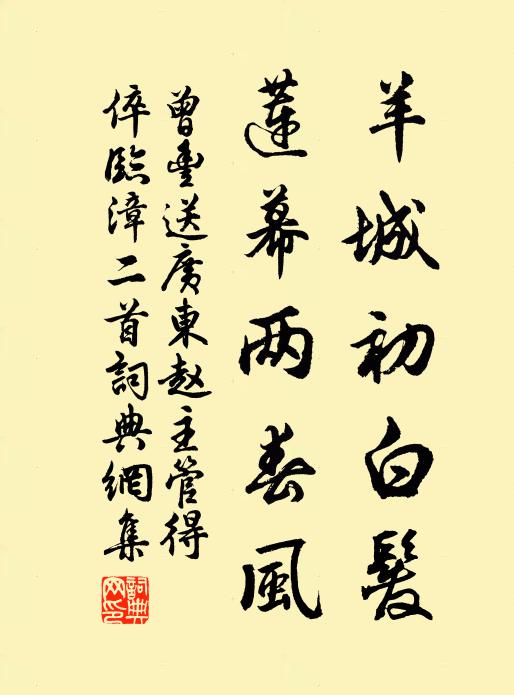 羊城初白髮
蓮幕两春風
曾豐送廣東赵主管得
倅臨漳二首詞典網集
詞典網印